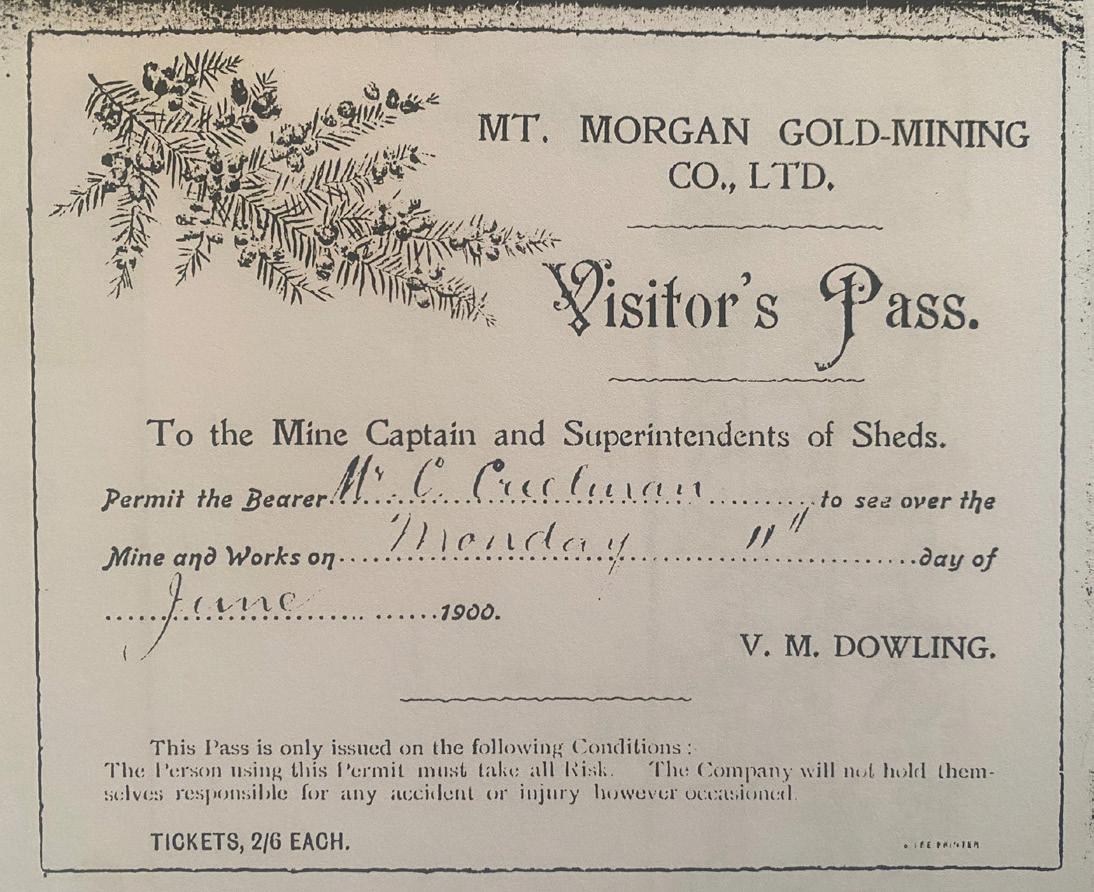 MT. MORGAN GOLD-MINING
CO., LTD.
Visitor's Pass.
To the Mine Captain and Superintendents of Sheds.
Permit the Bearer Mr C. Creelman to see over the
Mine and Works on Monday 11" day of
June 1900.
V. M. DOWLING.
This Pass is only issued on the following Conditions :
The Person using this Permit must take all Risk. The Company will not hold them-
selves responsible for any accident or injury however occasioned.
TICKETS, 2/6 EACH.
PRINTER